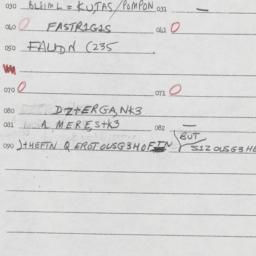 030 BLUML = KUJAS/POMPON 031 —
040 O FASTR1G1S 041 O
050 FAUDN (235
070 O 071 O
080 DZ+ERGA,NK3
081 A MERES+K3 082 —
090 )+HEFTN Q EROT OUSG3HOFIN BUT S1Z OUSG3HE